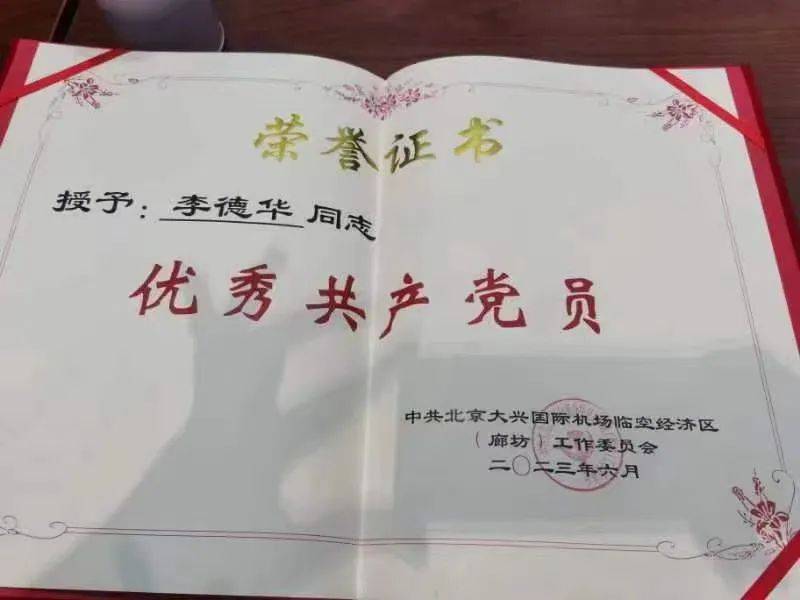 荣誉证书
授予：李德华同志
优秀共产党员
中共北京大兴国际机场临空经济区
（廊坊）工作委员会
二〇二三年六月